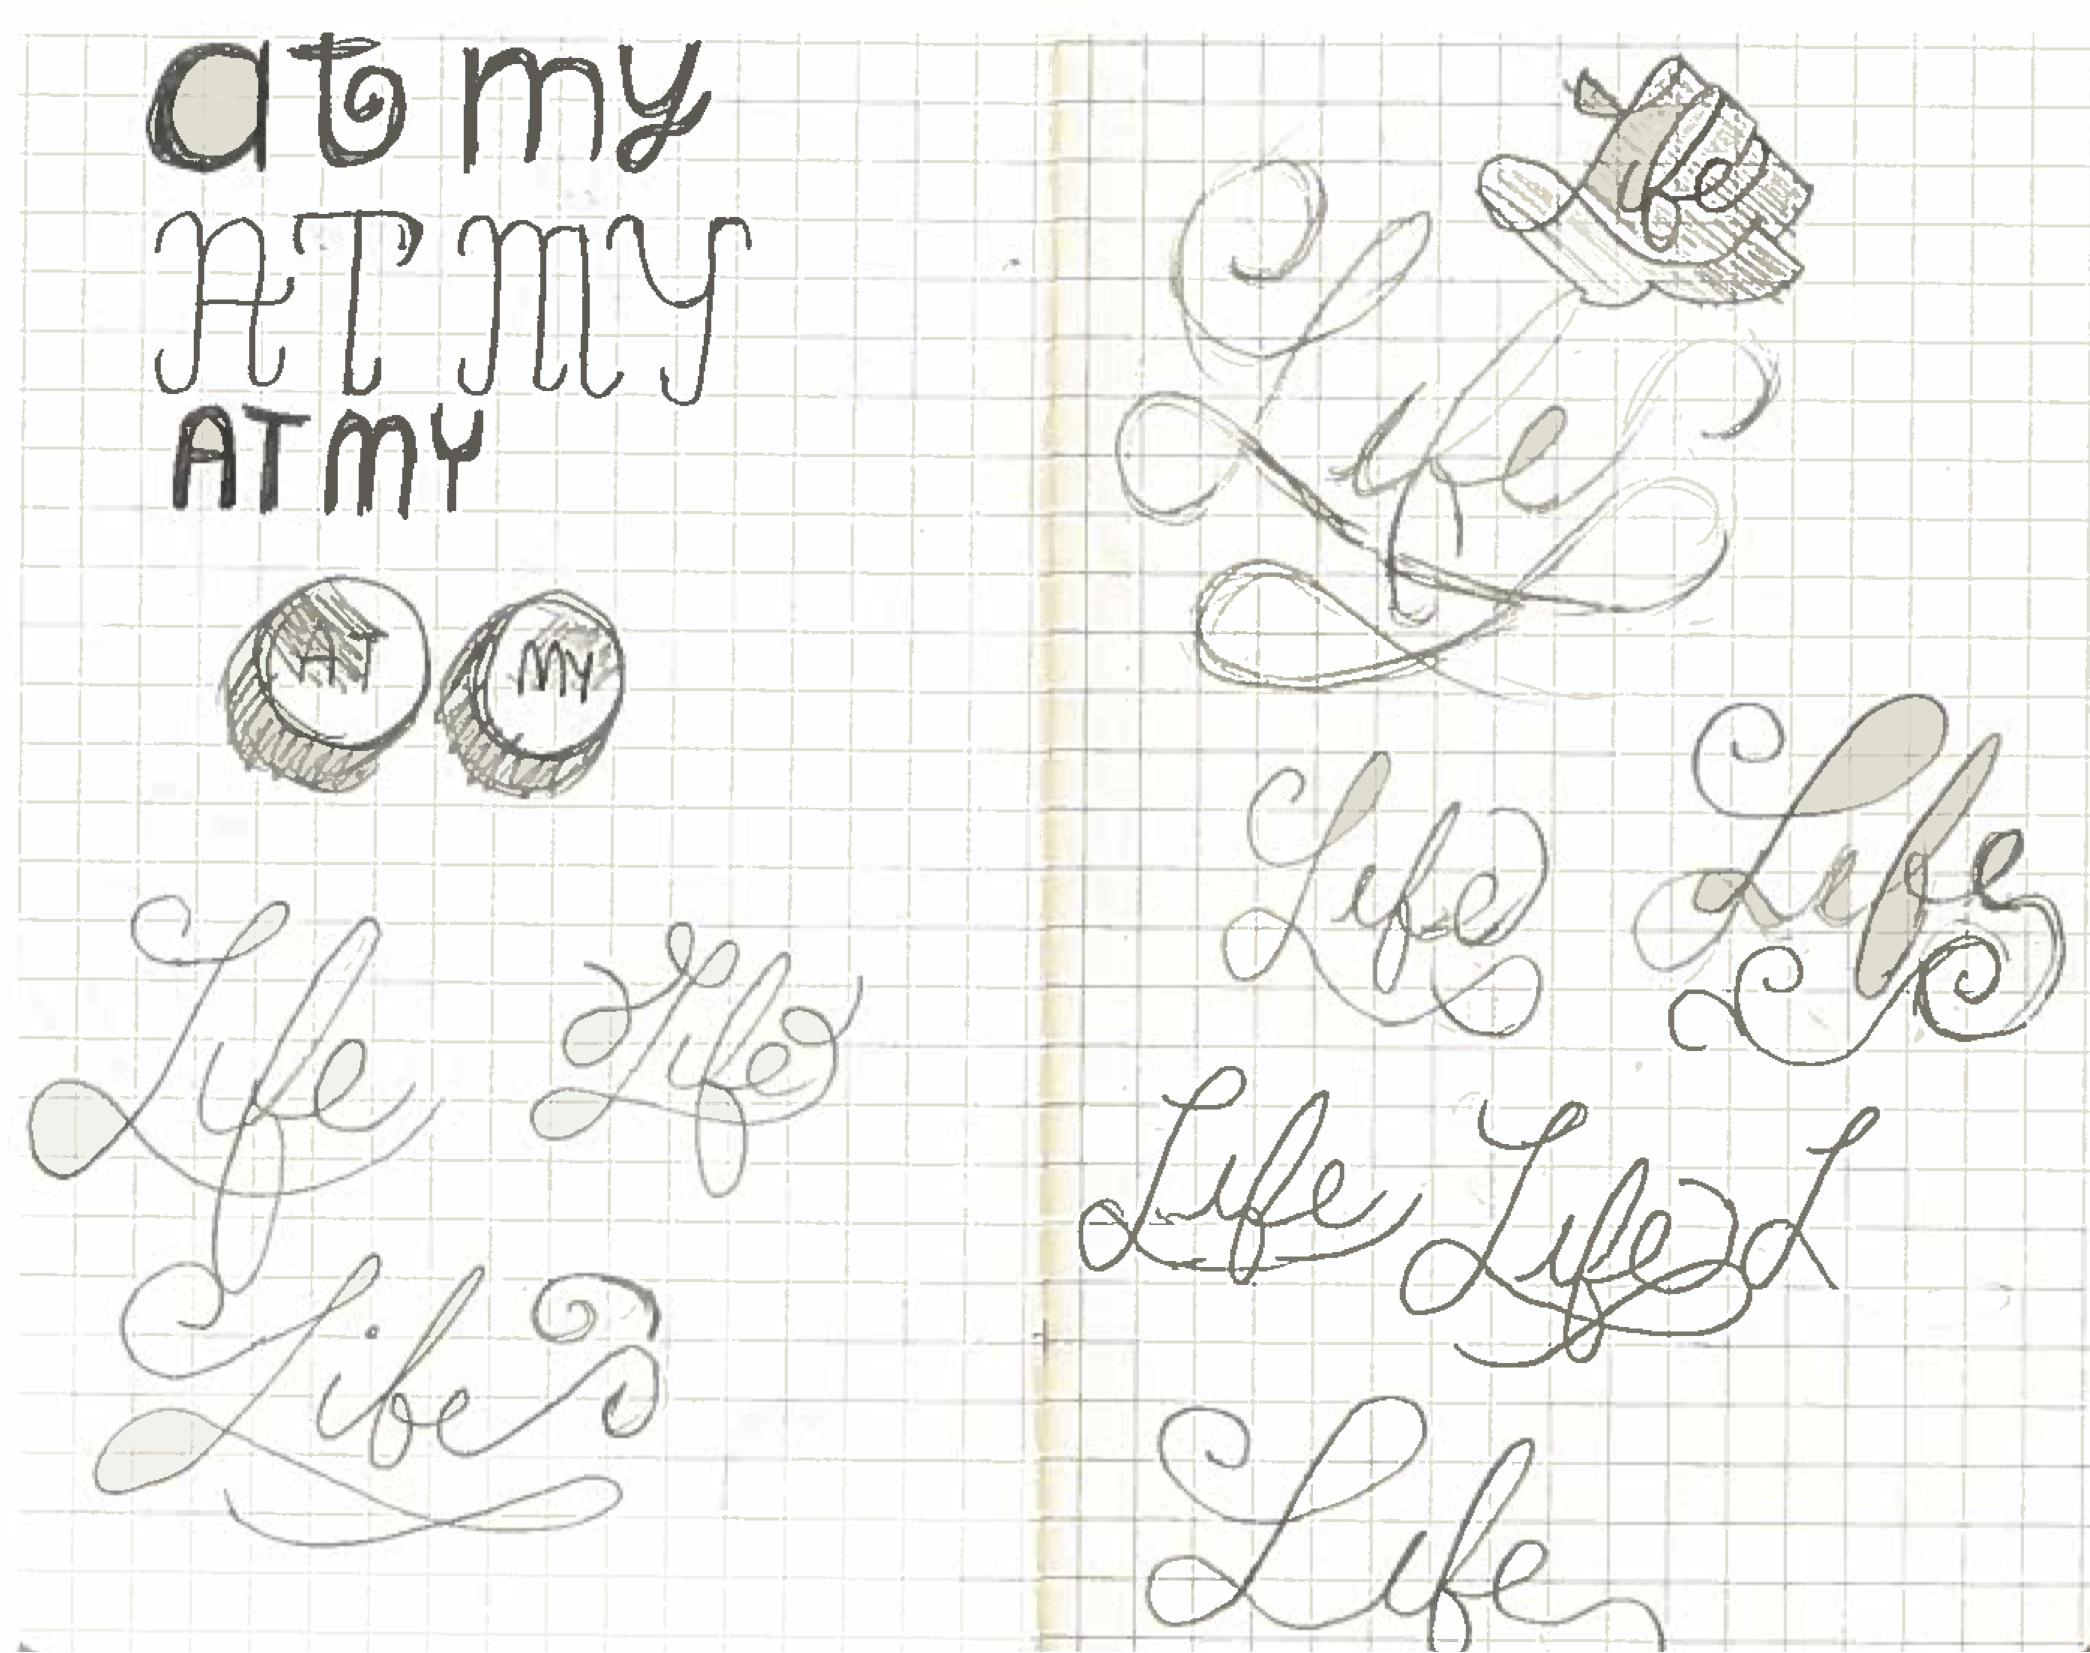 at my
AT MY
AT MY
AT MY
Life Life
Life
Life
Life
Life Life
Life Life L
Life